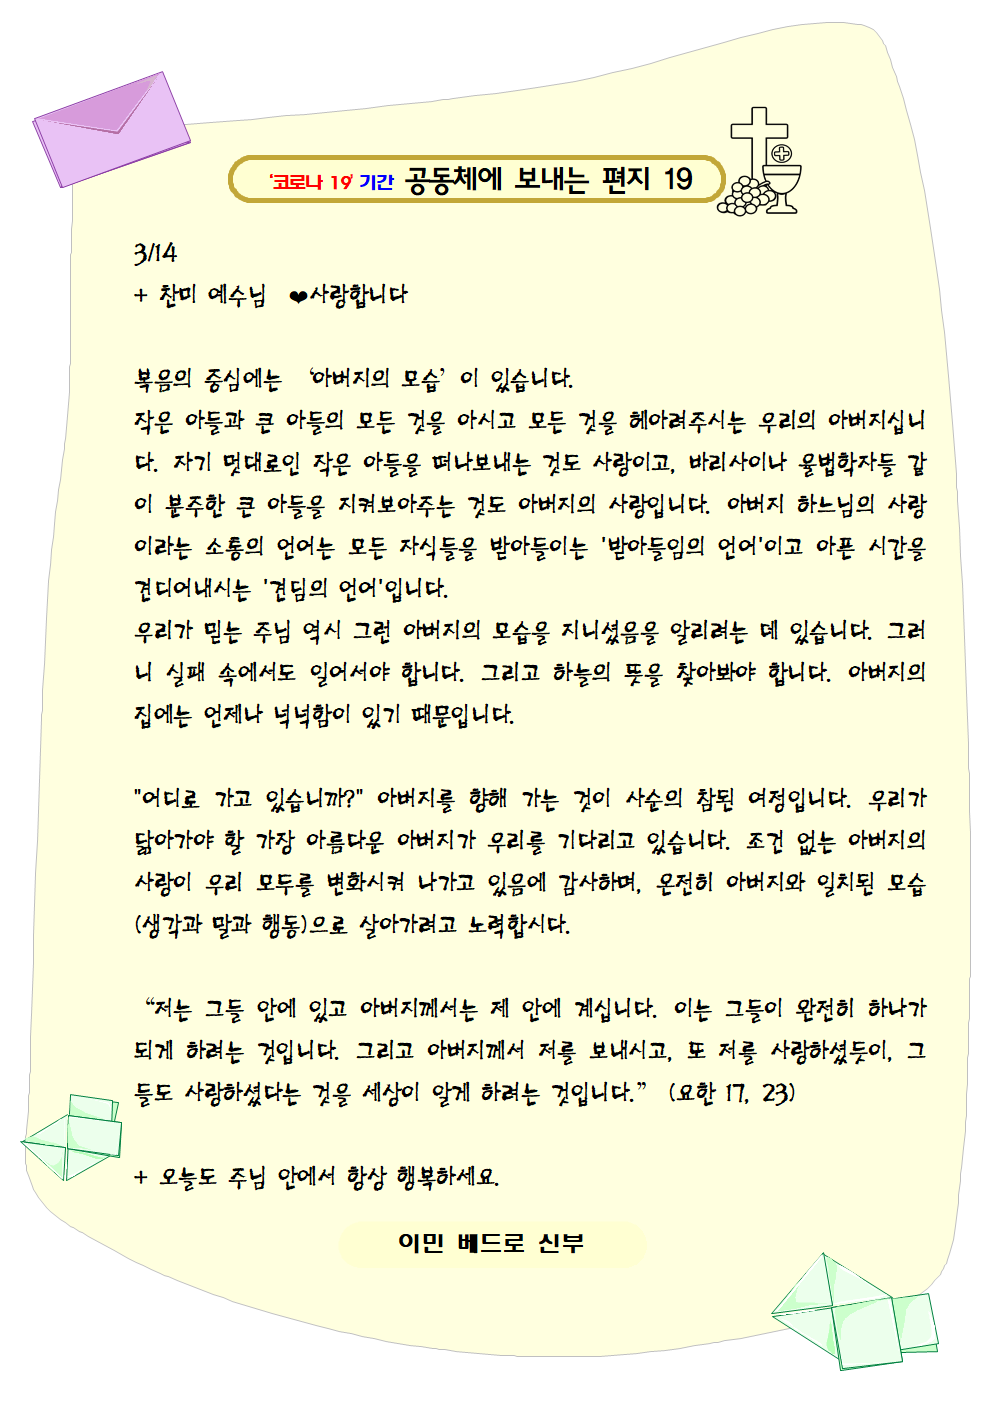 ‘코로나 19’ 기간 공동체에 보내는 편지 19
3/14
+ 찬미 예수님 ❤사랑합니다
복음의 중심에는 ‘아버지의 모습’이 있습니다.
작은 아들과 큰 아들의 모든 것을 아시고 모든 것을 헤아려주시는 우리의 아버지십니
다. 자기 멋대로인 작은 아들을 떠나보내는 것도 사랑이고, 바리사이나 율법학자들 같
이 분주한 큰 아들을 지켜보아주는 것도 아버지의 사랑입니다. 아버지 하느님의 사랑
이라는 소통의 언어는 모든 자식들을 받아들이는 '받아들임의 언어'이고 아픈 시간을
견디어내시는 '견딤의 언어'입니다.
우리가 믿는 주님 역시 그런 아버지의 모습을 지니셨음을 알리려는 데 있습니다. 그러
니 실패 속에서도 일어서야 합니다. 그리고 하늘의 뜻을 찾아봐야 합니다. 아버지의
집에는 언제나 넉넉함이 있기 때문입니다.
"어디로 가고 있습니까?" 아버지를 향해 가는 것이 사순의 참된 여정입니다. 우리가
닮아가야 할 가장 아름다운 아버지가 우리를 기다리고 있습니다. 조건 없는 아버지의
사랑이 우리 모두를 변화시켜 나가고 있음에 감사하며, 온전히 아버지와 일치된 모습
(생각과 말과 행동)으로 살아가려고 노력합시다.
“저는 그들 안에 있고 아버지께서는 제 안에 계십니다. 이는 그들이 완전히 하나가
되게 하려는 것입니다. 그리고 아버지께서 저를 보내시고, 또 저를 사랑하셨듯이, 그
들도 사랑하셨다는 것을 세상이 알게 하려는 것입니다.” (요한 17, 23)
+ 오늘도 주님 안에서 항상 행복하세요.
이민 베드로 신부